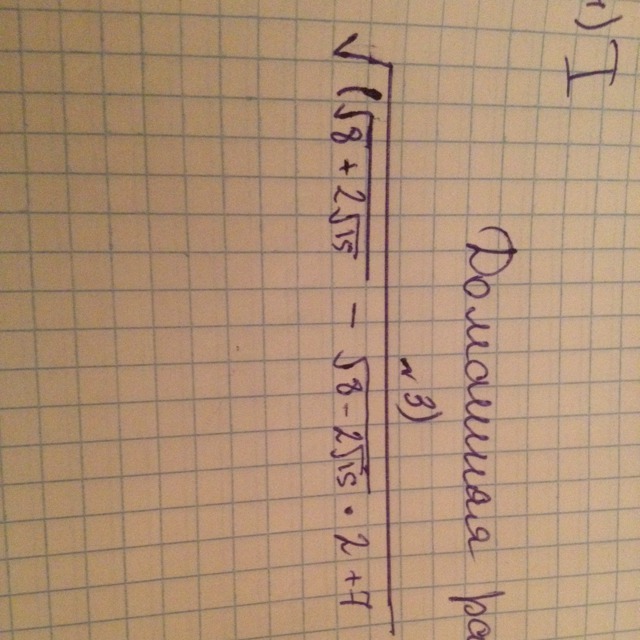 I
Домашняя
№3)
√(√8 + 2√15 − √8 − 2√15 · 2 + 7